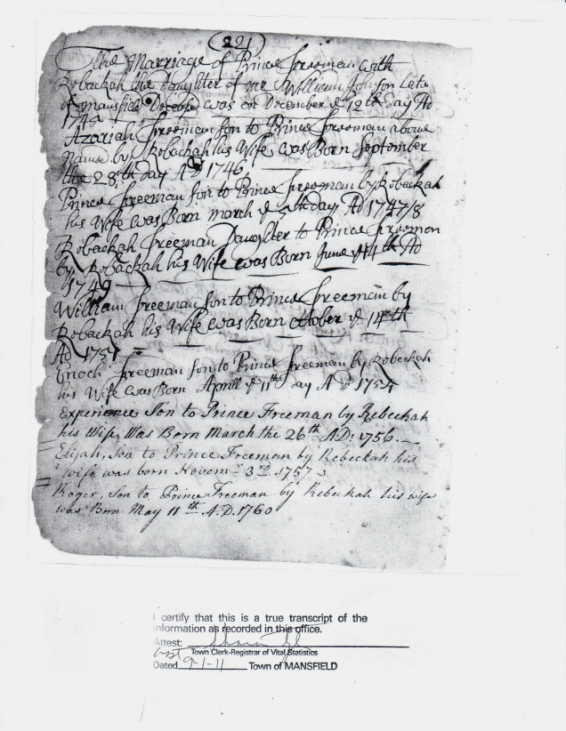 (221)
The Marriage of Prince Freeman with
Robackah the Daughter of mr William Johnson Late
of mansfield was on December ye 12th Day AD
1745
Azariah Freeman son to Prince Freeman above
Named by Robackah his Wife was Born September
the 28th Day AD 1746
Prince Freeman son to Prince Freeman by Robackah
his Wife was Born March ye 5th Day AD 1747/8
Robackah Freeman Daughter to Prince Freeman
by Robackah his Wife was Born June ye 14th AD
1749
William Freeman son to Prince Freeman by
Robackah his Wife was Born october ye 14th
AD 1751
Enoch Freeman son to Prince Freeman by Robeckah
his Wife was Born Aprill ye 11th Day AD 1754
Experience Son to Prince Freeman by Rebeckah
his Wife Was Born March the 26th A.D. 1756.
Elijah, Son to Prince Freeman by Rebeckah his
wife was born Novemr 3rd 1757
Roger, Son to Prince Freeman by Rebeckah his wife
was Born May 11th A.D. 1760
I certify that this is a true transcript of the
information as recorded in this office.
Attest:
Asst Town Clerk-Registrar of Vital Statistics
Dated 9-1-11 Town of MANSFIELD